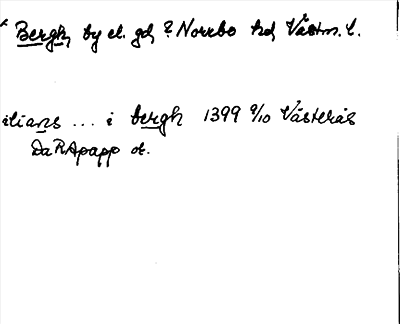 Bergh, by el. gd, ? Norrbo hd, Västm. l.
ilians ... i bergh 1399 9/10 Västerås
DaRApapp or.